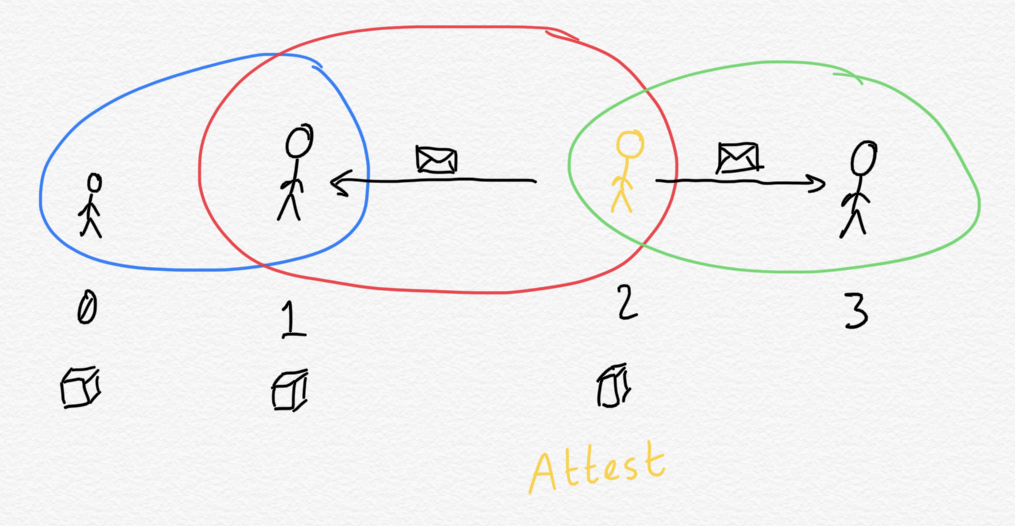 0 1 2 3
Attest